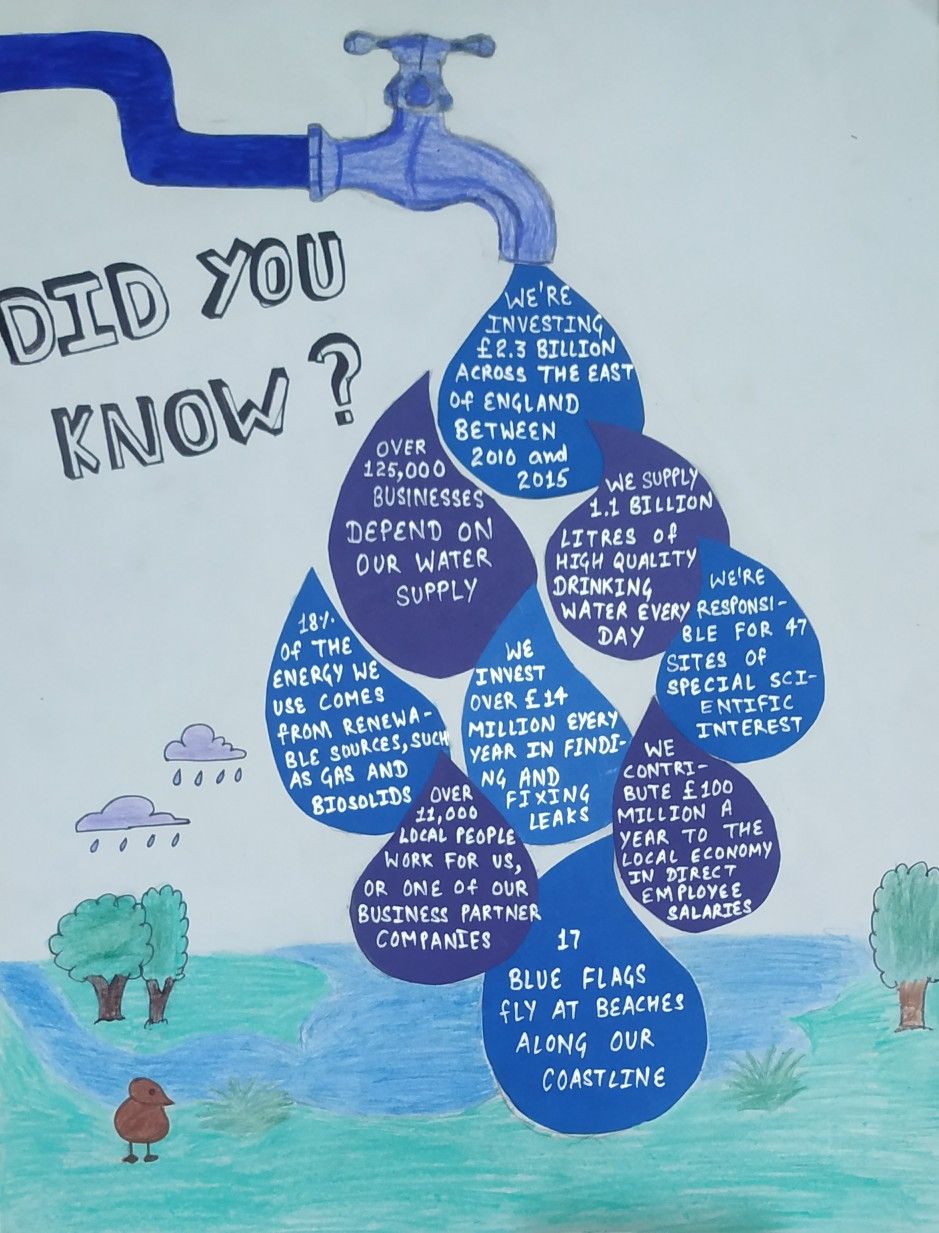 DID YOU
KNOW?
WE'RE
INVESTING
£2.3 BILLION
ACROSS THE EAST
Of ENGLAND
BETWEEN
2010 and
2015
OVER
125,000
BUSINESSES
DEPEND ON
OUR WATER
SUPPLY
WE SUPPLY
1.1 BILLION
LITRES Of
HIGH QUALITY
DRINKING
WATER EVERY
DAY
WE'RE
RESPONSI-
BLE FOR 47
SITES OF
SPECIAL SCI-
ENTIFIC
INTEREST
18%
Of THE
ENERGY WE
USE COMES
FROM RENEWA-
BLE SOURCES, SUCH
AS GAS AND
BIOSOLIDS
WE
INVEST
OVER £14
MILLION EVERY
YEAR IN FINDI-
NG AND
FIXING
LEAKS
WE
CONTRI-
BUTE £100
MILLION A
YEAR TO THE
LOCAL ECONOMY
IN DIRECT
EMPLOYEE
SALARIES
OVER
11,000
LOCAL PEOPLE
WORK FOR US,
OR ONE Of OUR
BUSINESS PARTNER
COMPANIES
17
BLUE FLAGS
fLY AT BEACHES
ALONG OUR
COASTLINE